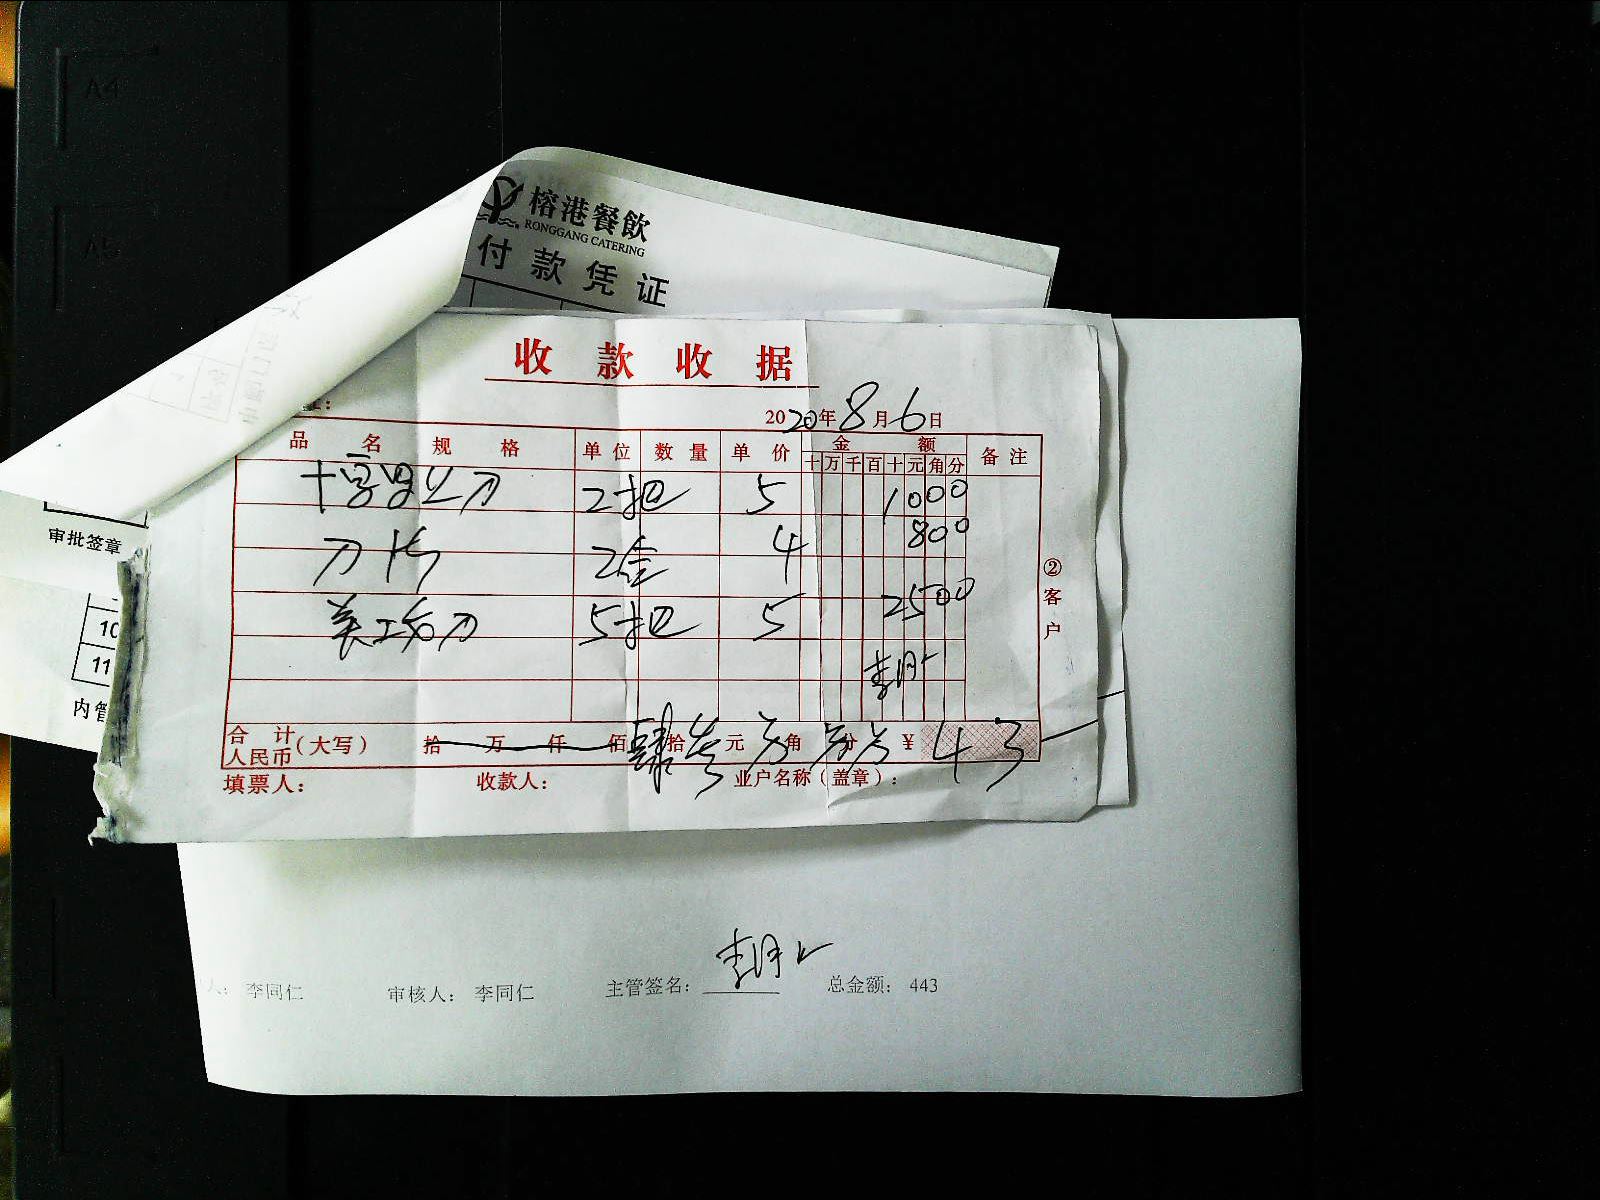 A4
A5
榕港餐飲
RONGGANG CATERING
付款凭证
收款收据
2020年8月6日
品名规格 单位 数量 单价 金额 备注
十万千百十元角分
十字 刀 2把 5 1000
刀片 2盒 4 800
美工 刀 5把 5 2500
②客户
合计人民币(大写) 拾万仟佰肆拾叁元 角 分 ¥ 43
填票人: 收款人: 业户名称(盖章):
审批签章
10
11
内管
人: 李同仁 审核人: 李同仁 主管签名: 总金额: 443